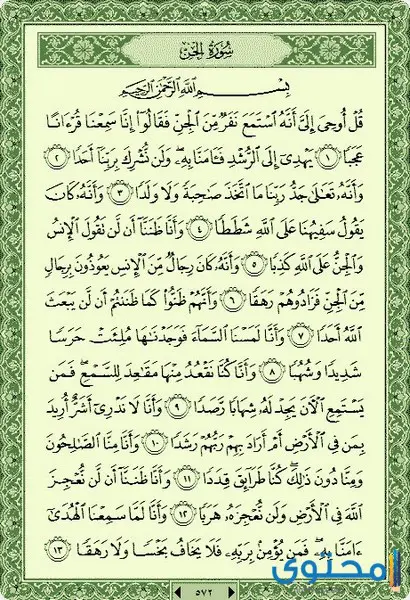 سُورَةُ الجِنِّ
بِسْمِ اللَّهِ الرَّحْمَٰنِ الرَّحِيمِ
قُلْ أُوحِىَ إِلَىَّ أَنَّهُ ٱسْتَمَعَ نَفَرٌ مِّنَ ٱلْجِنِّ فَقَالُوٓا۟ إِنَّا سَمِعْنَا قُرْءَانًا
عَجَبًا ١ يَهْدِىٓ إِلَى ٱلرُّشْدِ فَـَٔامَنَّا بِهِۦ وَلَن نُّشْرِكَ بِرَبِّنَآ أَحَدًا ٢
وَأَنَّهُۥ تَعَٰلَىٰ جَدُّ رَبِّنَا مَا ٱتَّخَذَ صَٰحِبَةً وَلَا وَلَدًا ٣ وَأَنَّهُۥ كَانَ
يَقُولُ سَفِيهُنَا عَلَى ٱللَّهِ شَطَطًا ٤ وَأَنَّا ظَنَنَّآ أَن لَّن تَقُولَ ٱلْإِنسُ
وَٱلْجِنُّ عَلَى ٱللَّهِ كَذِبًا ٥ وَأَنَّهُۥ كَانَ رِجَالٌ مِّنَ ٱلْإِنسِ يَعُوذُونَ بِرِجَالٍ
مِّنَ ٱلْجِنِّ فَزَادُوهُمْ رَهَقًا ٦ وَأَنَّهُمْ ظَنُّوا۟ كَمَا ظَنَنتُمْ أَن لَّن يَبْعَثَ
ٱللَّهُ أَحَدًا ٧ وَأَنَّا لَمَسْنَا ٱلسَّمَآءَ فَوَجَدْنَٰهَا مُلِئَتْ حَرَسًا
شَدِيدًا وَشُهُبًا ٨ وَأَنَّا كُنَّا نَقْعُدُ مِنْهَا مَقَٰعِدَ لِلسَّمْعِ فَمَن
يَسْتَمِعِ ٱلْـَٔانَ يَجِدْ لَهُۥ شِهَابًا رَّصَدًا ٩ وَأَنَّا لَا نَدْرِىٓ أَشَرٌّ أُرِيدَ
بِمَن فِى ٱلْأَرْضِ أَمْ أَرَادَ بِهِمْ رَبُّهُمْ رَشَدًا ١٠ وَأَنَّا مِنَّا ٱلصَّٰلِحُونَ
وَمِنَّا دُونَ ذَٰلِكَ كُنَّا طَرَآئِقَ قِدَدًا ١١ وَأَنَّا ظَنَنَّآ أَن لَّن نُّعْجِزَ
ٱللَّهَ فِى ٱلْأَرْضِ وَلَن نُّعْجِزَهُۥ هَرَبًا ١٢ وَأَنَّا لَمَّا سَمِعْنَا ٱلْهُدَىٰٓ
ءَامَنَّا بِهِۦ فَمَن يُؤْمِنۢ بِرَبِّهِۦ فَلَا يَخَافُ بَخْسًا وَلَا رَهَقًا ١٣
٥٧٢
محتوى